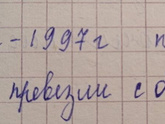 -1997г п
превезли с о